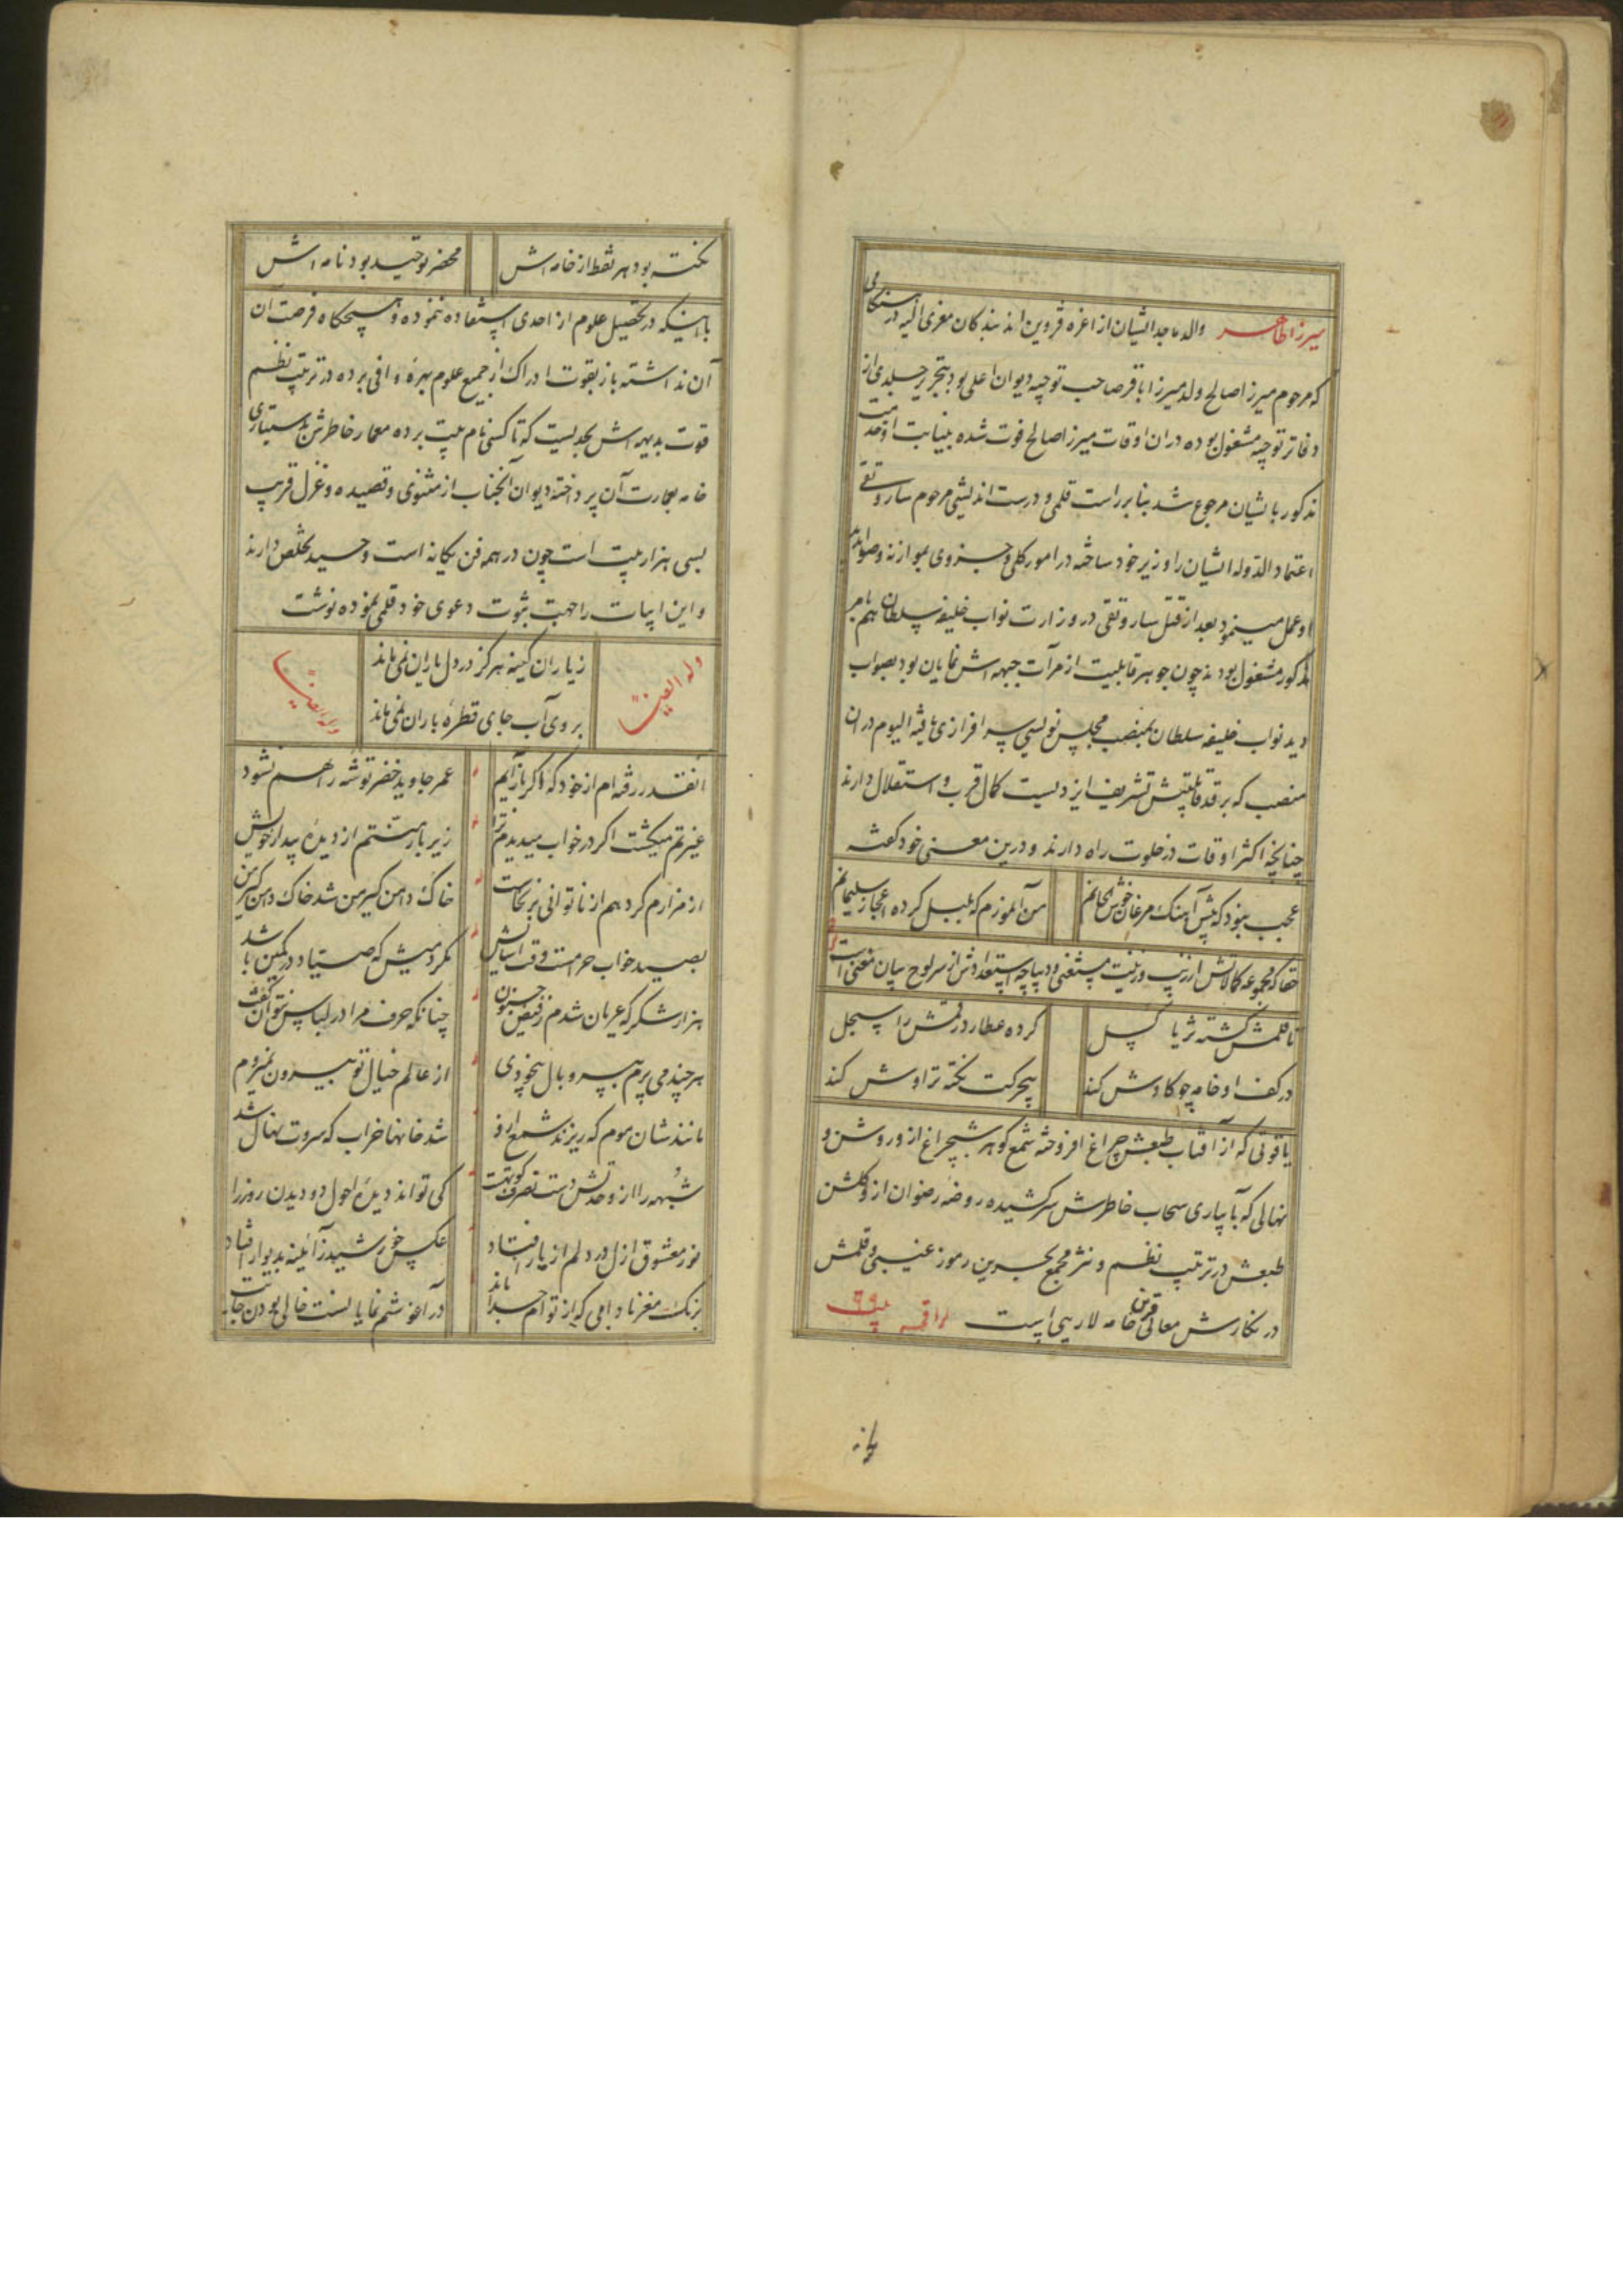 میرزا طاهر والد ماجد ایشان از اعزه قزوین اند بندگان مغری الیه در هنگامی
که مرحوم میرزا صالح ولد میرزا باقر صاحب توجیه دیوان اعلی بود بتحریر جلدی از
دفاتر توجیه مشغول بوده در ان اوقات میرزا صالح فوت شده بنیابت او خدمت
مذکور بایشان مرجوع شد بنابر راست قلمی و درست اندیشی مرحوم ساروتقی
اعتماد الدوله ایشان را وزیر خود ساخته در امور کلی و جزوی بموازنه و صوابدید
او عمل مینمود بعد از قتل ساروتقی در وزارت نواب خلیفه سلطان هم بامر
مذکور مشغول بودند چون جوهر قابلیت از مرآت جبهه اش نمایان بود بصواب
دید نواب خلیفه سلطان بمنصب مجلس نویسی سرافرازی یافته الیوم در ان
منصب که بر قد قابلیتش تشریف ایزدیست کمال قرب و استقلال دارند
چنانچه اکثر اوقات در خلوت راه دارند و درین معنی خود گفته
عجب نبود که پیش آهنگ مرغان خوش الحانم من آن مورم که بلبل کرده اعجاز سلیمانم
حقا که مجموعه کمالاتش از زیب و زینت مستغنی و دیباچه استعدادش از سرلوح بیان معنی است
تا قلمش گشته ثریا گسل کرده عطارد رقمش را سجل
در کف او خامه چو کاوش کند بیحرکت نکته تراوش کند
یاقوتی که از آفتاب طبعش چراغ افروخته شمع گوهر شبچراغ از و روشن و
نهالی که بآبیاری سحاب خاطرش سر کشیده روضه رضوان از و گلشن
طبعش در ترتیب نظم و نثر مجمع بحرین رموز غیبی و قلمش
در نگارش معانی قرین خامه لاریبی است لراقمه بیت
نکته بود هر نقط از خامه اش محضر توحید بود نامه اش
با اینکه در تحصیل علوم از احدی استفاده ننموده و هیچگاه فرصت آن
آن نداشته باز بقوت ادراک از جمیع علوم بهره وافی برده در ترتیب نظم
قوت بدیهه اش بحدیست که تا کسی نام بیت برده معمار خاطرش بدستیاری
خامه بعمارت آن پرداخته دیوان آنجناب از مثنوی و قصیده و غزل قریب
بسی هزار بیت است چون در همه فن یگانه است وحید تخلص دارند
و این ابیات را جهت ثبوت دعوی خود قلمی نموده نوشت
وله ایضا زیاران کینه هرگز در دل یاران نمی ماند
بروی آب جای قطره باران نمی ماند وله ایضا
انقدر رفته ام از خود که اگر باز آیم عمر جاوید خضر توشه راهم نشود
غیرتم میکشت اگر در خواب میدیدم ترا زیر بار منتم از دیده بیدار خویش
از مزارم گرد هم از ناتوانی بر نخاست خاک دامن گیر من شد خاک دامن گیر من
بصید خواب حرامست وقت آسایش مگر دمیش که صیاد در کمین باشد
هزار شکر که عریان شدم ز فیض جنون چنانکه حرف مرا در لباس نتوان گفت
هر چند می پرم به پر و بال بیخودی از عالم خیال تو بیرون نمیروم
مانند شان موم که ریزند شمع ازو شد خانها خراب که سروت نهال شد
شبهه را از وحدتش دست تصرف کوتهست کی تواند دیده احول دو دیدن روز را
نور معشوق ازل در دلم از یار افتاد عکس خورشید ز آئینه بدیوار افتاد
برنگ مغز بادامی که از توام جدا ماند در آغوشم نمایانست خالی بودن جایت